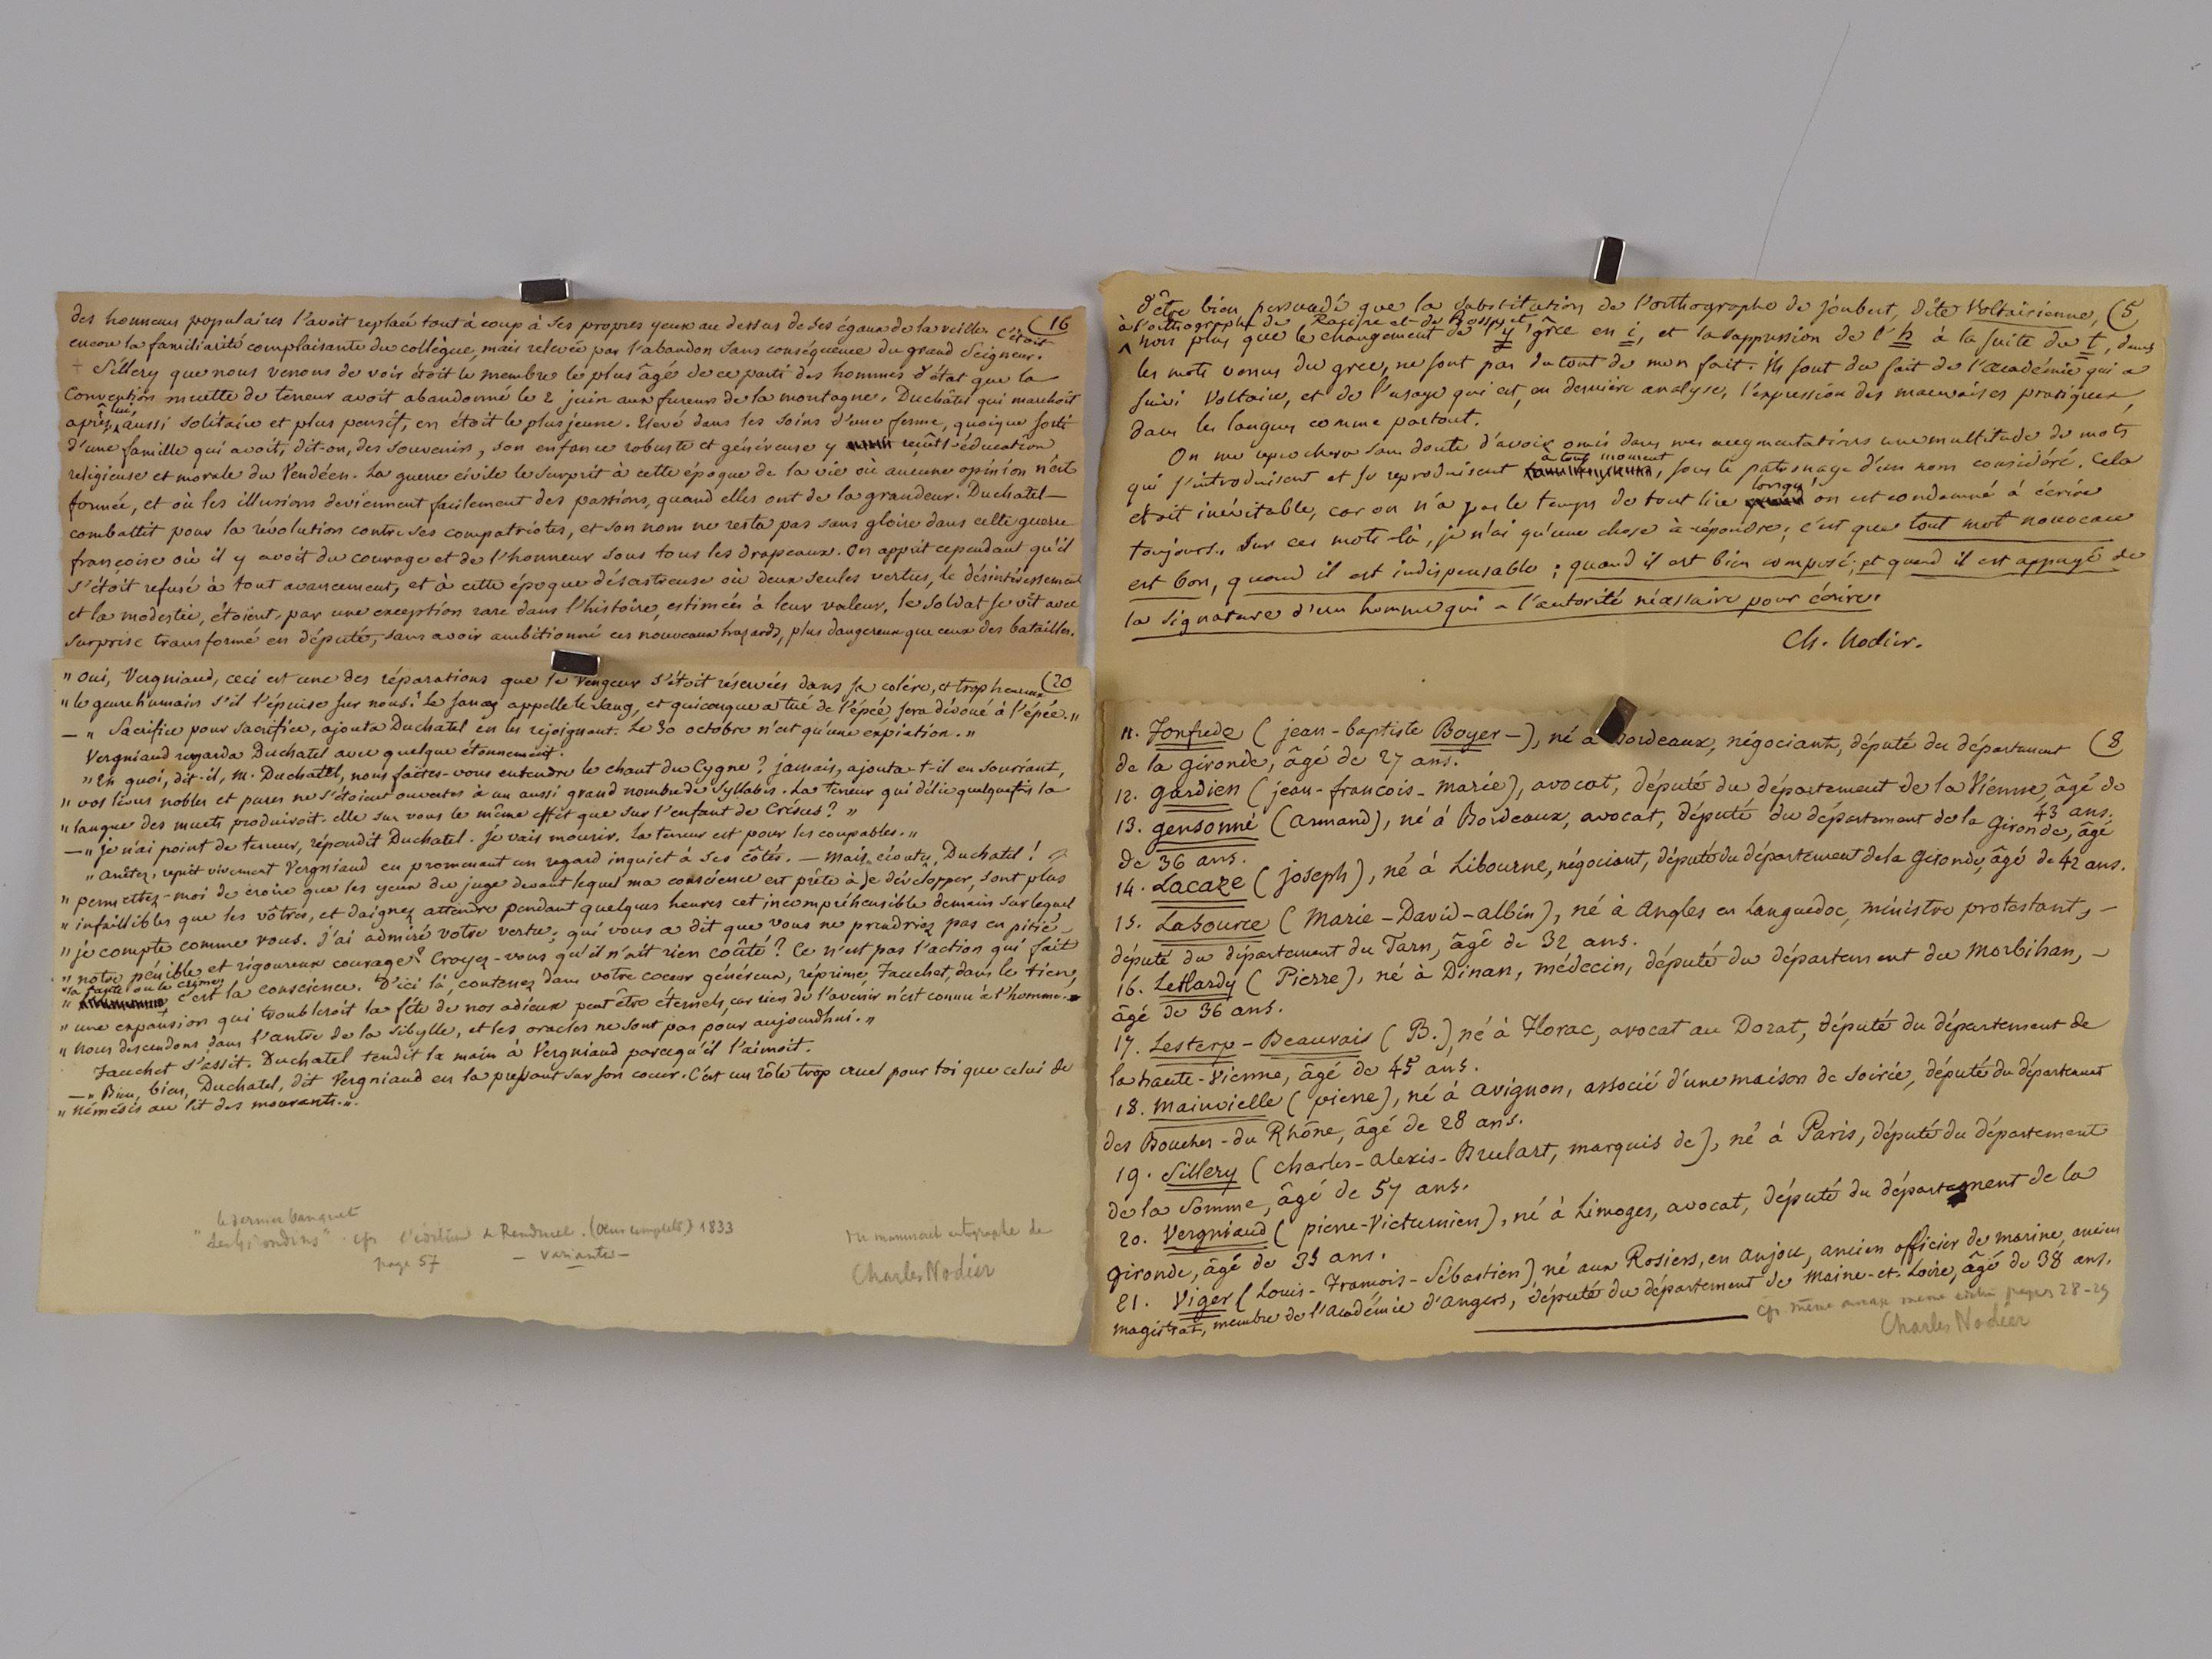 (16
des honneurs populaires l'avoit replacé tout à coup à ses propres yeux au dessus de ses égaux de la veille. C'étoit
encore la familiarité complaisante du collègue, mais relevée par l'abandon sans conséquence du grand Seigneur.
Sillery que nous venons de voir étoit le membre le plus âgé de ce parti des hommes d'état que la
Convention muette de terreur avoit abandonné le 2 juin aux fureurs de la montagne. Duchâtel qui marchoit
après lui, aussi solitaire et plus pensif, en étoit le plus jeune. Elevé dans les soins d'une ferme, quoique sorti
d'une famille qui avoit, dit-on, des souvenirs, son enfance robuste et généreuse y reçut l'éducation
religieuse et morale du Vendéen. La guerre civile le surprit à cette époque de la vie où aucune opinion n'est
formée, et où les illusions deviennent facilement des passions, quand elles ont de la grandeur. Duchatel
combattit pour la révolution contre ses compatriotes, et son nom ne resta pas sans gloire dans cette guerre
françoise où il y avoit du courage et de l'honneur sous tous les drapeaux. On apprit cependant qu'il
s'étoit refusé à tout avancement, et à cette époque désastreuse où deux seules vertus, le désintéressement
et la modestie, étoient, par une exception rare dans l'histoire, estimées à leur valeur, le soldat se vit avec
surprise transformé en député, sans avoir ambitionné ces nouveaux hazards, plus dangereux que ceux des batailles.
(20
" Oui, Vergniaud, ceci est une des réparations que le Vengeur s'étoit réservées dans sa colère, et trop heureux
" le genre humain s'il l'épuise sur nous! Le sang appelle le sang, et quiconque a tué de l'épée, sera dévoué à l'épée. "
— " Sacrifice pour sacrifice, ajouta Duchatel en les rejoignant. Le 30 octobre n'est qu'une expiation. "
Vergniaud regarda Duchatel avec quelque étonnement.
" En quoi, dit-il, M. Duchatel, nous faites-vous entendre le chant du Cygne? jamais, ajouta-t-il en souriant,
" vos lèvres nobles et pures ne s'étoient ouvertes à un aussi grand nombre de syllabes. La terreur qui délie quelquefois la
" langue des muets produiroit-elle sur vous le même effet que sur l'enfant de Crésus? "
— " je n'ai point de terreur, répondit Duchatel. je vais mourir. La terreur est pour les coupables. "
" Arrêtez, reprit vivement Vergniaud en promenant un regard inquiet à ses côtés. — Mais écoutez, Duchatel!
" permettez-moi de croire que les yeux du juge devant lequel ma conscience est prête à se développer, sont plus
" infaillibles que les vôtres, et daignez attendre pendant quelques heures cet incompréhensible demain sur lequel
" je compte comme vous. J'ai admiré votre vertu; qui vous a dit que vous ne prendriez pas en pitié
" notre pénible et rigoureux courage? Croyez-vous qu'il n'ait rien coûté? Ce n'est pas l'action qui fait
" la faute ou le crime; c'est la conscience. D'ici là, contenez dans votre coeur généreux, réprime, Fauchet, dans le tien,
" une expansion qui troubleroit la fête de nos adieux peut être éternels, car rien de l'avenir n'est connu à l'homme.
" Nous descendons dans l'antre de la Sibylle, et les oracles ne sont pas pour aujourdhui. "
Fauchet s'assit. Duchatel tendit la main à Vergniaud parcequ'il l'aimoit.
— " Bien, bien, Duchatel, dit Vergniaud en la pressant sur son coeur. C'est un rôle trop cruel pour toi que celui de
" Némésis au lit des mourants. "
le dernier banquet
" des Girondins " cfr l'édition de Renduel. (Oeuv. complètes) 1833
page 57 — variantes —
du manuscrit autographe de
Charles Nodier
(5
d'être bien persuadé que la substitution de l'orthographe de Joubert, dite Voltairienne,
à l'orthographe de Racine et de Bossuet,
non plus que le changement de l'y grec en i, et la suppression de l'h à la suite du t, dans
les mots venus du grec, ne sont pas du tout de mon fait. Ils sont du fait de l'académie qui a
suivi Voltaire, et de l'usage qui est, en dernière analyse, l'expression des mauvaises pratiques,
dans les langues comme partout.
On me reprochera sans doute d'avoir omis dans mes augmentations une multitude de mots
qui s'introduisent et se reproduisent à tout moment, sous le patronage d'un nom considéré. Cela
étoit inévitable, car on n'a pas le temps de tout lire lorsqu'on est condamné à écrire
toujours. Sur ces mots-là, je n'ai qu'une chose à répondre; c'est que tout mot nouveau
est bon, quand il est indispensable; quand il est bien composé; et quand il est appuyé de
la signature d'un homme qui a l'autorité nécessaire pour écrire.
Ch. Nodier.
(8
11. Fonfrede (jean-baptiste Boyer-), né à Bordeaux, négociant, député du département
de la Gironde, âgé de 27 ans.
12. Gardien (jean-francois-Marie), avocat, député du département de la Vienne, âgé de
43 ans.
13. Gensonné (Armand), né à Bordeaux, avocat, député du département de la Gironde, âgé
de 36 ans.
14. Lacaze (joseph), né à Libourne, négociant, député du département de la Gironde, âgé de 42 ans.
15. LaSource (Marie-David-albin), né à Angles en Languedoc, ministre protestant, -
député du département du Tarn, âgé de 32 ans.
16. LeHardy (Pierre), né à Dinan, médecin, député du département du Morbihan, -
âgé de 36 ans.
17. Lesterp-Beauvais (B.), né à Florac, avocat au Dorat, député du département de
la haute-Vienne, âgé de 45 ans.
18. Mainvielle (pierre), né à Avignon, associé d'une maison de soirie, député du département
des Bouches-du Rhône, âgé de 28 ans.
19. Sillery (Charles-Alexis-Brulart, marquis de), né à Paris, député du département
de la Somme, âgé de 57 ans.
20. Vergniaud (pierre-Victurnien), né à Limoges, avocat, député du département de la
Gironde, âgé de 35 ans.
21. Viger (Louis-Francois-Sébastien) né aux Rosiers, en Anjou, ancien officier de marine, ancien
magistrat, membre de l'Académie d'Angers, député du département de Maine-et-Loire, âgé de 38 ans.
cfr. même ouvrage même édition pages 28-29
Charles Nodier